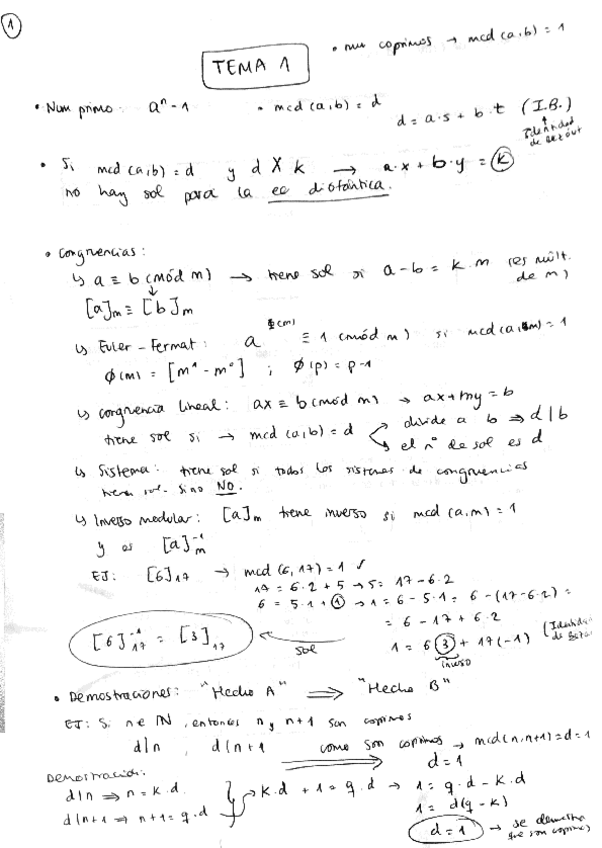 1
• num coprimos → mcd(a,b) = 1
TEMA 1
• Num primo: aⁿ - 1 • mcd(a,b) = d
d = a·s + b·t (I.B.)
Identidad de Bezout
• Si mcd(a,b) = d y d ∤ k → a·x + b·y = k
no hay sol para la ec diofántica.
• Congruencias:
↳ a ≡ b (mód m) → tiene sol si a - b = k·m (es múlt. de m)
[a]m ≡ [b]m
↳ Euler - Fermat: a^ϕ(m) ≡ 1 (mód m) si mcd(a,m) = 1
ϕ(m) = [m¹ - m⁰] ; ϕ(p) = p-1
↳ congruencia lineal: ax ≡ b (mód m) → ax + my = b
tiene sol si → mcd(a,b) = d divide a b ⇒ d | b
el nº de sol es d
↳ Sistema: tiene sol si todos los sistemas de congruencias
tienen sol. Sino NO.
↳ Inverso modular: [a]m tiene inverso si mcd(a,m) = 1
y es [a]⁻¹m
EJ: [6]17 → mcd(6,17) = 1 ✓
17 = 6·2 + 5 → 5 = 17 - 6·2
6 = 5·1 + 1 → 1 = 6 - 5·1 = 6 - (17 - 6·2) =
= 6 - 17 + 6·2
1 = 6(3) + 17(-1) (Identidad de Bezout)
inverso
[6]⁻¹17 = [3]17 sol
• Demostraciones: "Hecho A" ⟹ "Hecho B"
EJ: Si n ∈ ℕ, entonces n y n+1 son coprimos
d|n , d|n+1 como son coprimos → mcd(n,n+1) = d = 1
d = 1
Demostración:
d|n ⇒ n = k·d
d|n+1 ⇒ n+1 = q·d
k·d + 1 = q·d → 1 = q·d - k·d
1 = d(q - k)
d = 1 → se demuestra que son coprimos